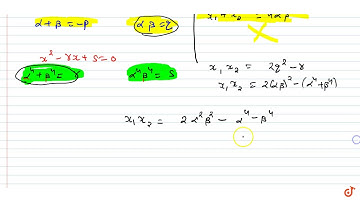 α+β = -p
αβ = q
x₁+x₂ = 4αβ
x² - rx + s = 0
α⁴+β⁴ = r
α⁴β⁴ = s
x₁x₂ = 2q² - r
x₁x₂ = 2(αβ)² - (α⁴+β⁴)
x₁x₂ = 2α²β² - α⁴ - β⁴